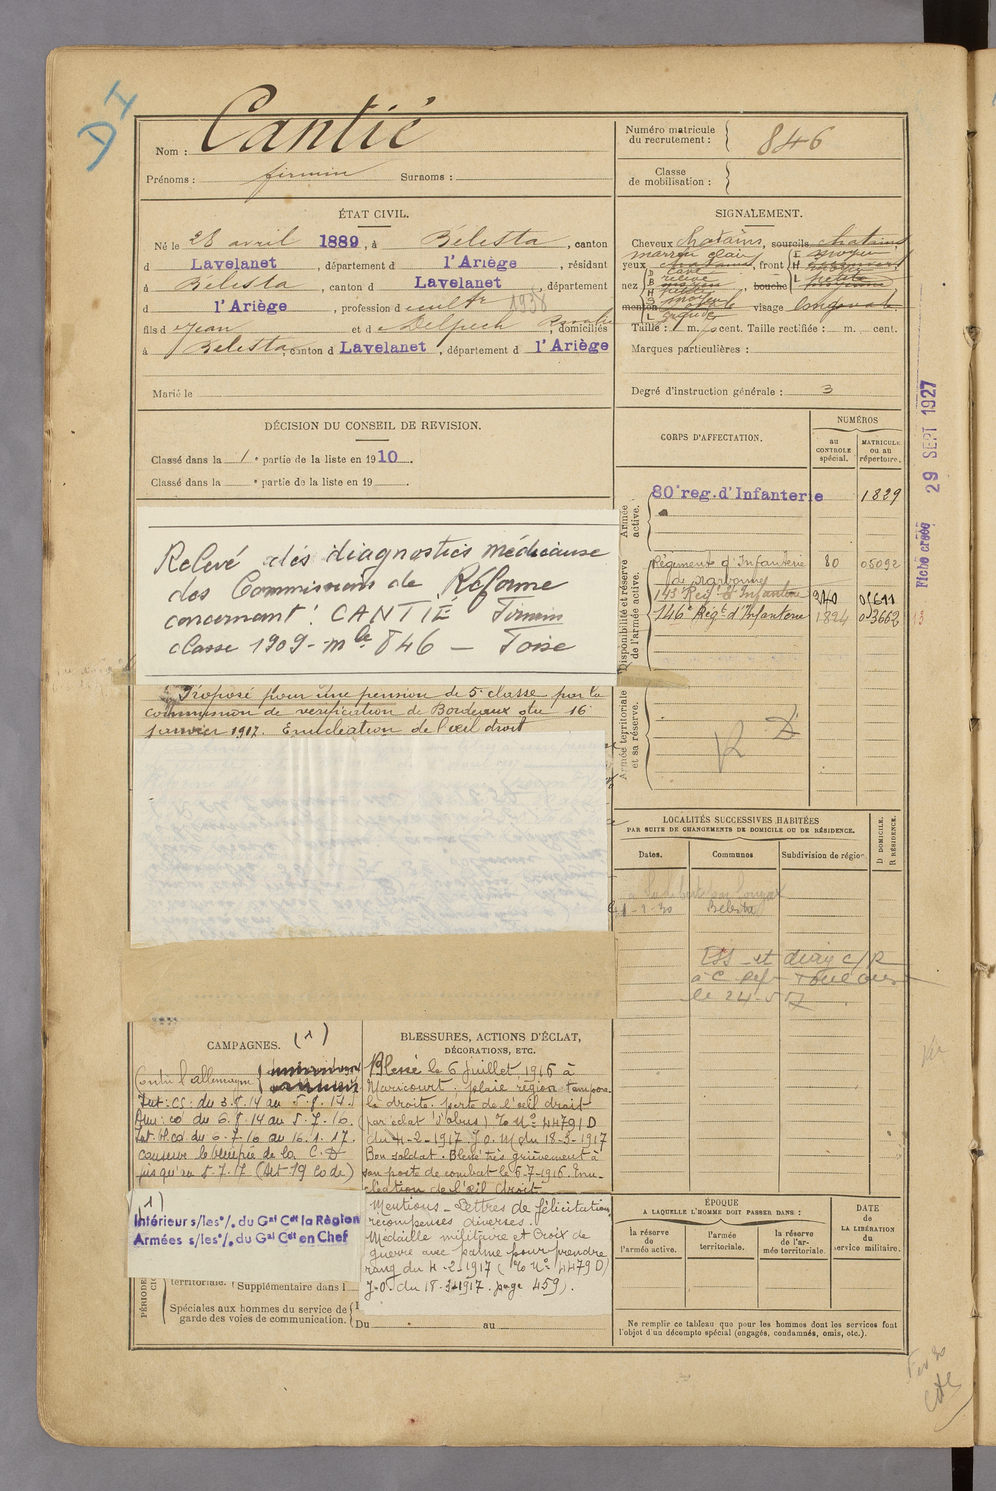 Cantié
Nom :
Prénoms : firmin Surnoms :
Numéro matricule du recrutement : 846
Classe de mobilisation :
ÉTAT CIVIL.
Né le 28 avril 1889, à Bélesta, canton
d Lavelanet, département d l'Ariège, résidant
à Bélesta, canton d Lavelanet, département
d l'Ariège, profession de cultr 1938
fils de Jean et de Delpech, domiciliés
à Bélesta, canton d Lavelanet, département d l'Ariège
Marié le
SIGNALEMENT.
Cheveux chatains, sourcils chatains
marron clair
yeux, front
nez, bouche
menton, visage
Taille : 1 m. cent. Taille rectifiée : m. cent.
Marques particulières :
Degré d'instruction générale : 3
DÉCISION DU CONSEIL DE REVISION.
Classé dans la 1e partie de la liste en 1910.
Classé dans la e partie de la liste en 19
CORPS D'AFFECTATION.
NUMÉROS
au CONTROLE spécial.
MATRICULE ou au répertoire.
Armée active.
80e reg. d'Infanterie 1839
Disponibilité et réserve de l'armée active.
Régiment d'Infanterie 80 05092
de Narbonne
143e Rég. d'Infanterie
146e Régt d'Infanterie 1824 03662
Armée territoriale et sa réserve.
R D
Fiche créée 29 SEPT 1927
Relevé des diagnostics médicaux
des Commissions de Réforme
concernant : CANTIE Firmin
classe 1909 - mle 846 — Foix
Proposé pour une pension de 5e classe par la
commission de vérification de Bordeaux du 16
janvier 1917. Enucléation de l'œil droit
LOCALITÉS SUCCESSIVES HABITÉES
PAR SUITE DE CHANGEMENTS DE DOMICILE OU DE RÉSIDENCE.
Dates. Communes Subdivision de région
D DOMICILE.
R RÉSIDENCE.
Bélesta
ESS et diag c/R
à C. Ref Toulouse
le 24-5
CAMPAGNES. (1)
Contre l'allemagne
Int : CS : du 3.8.14 au 5.8.14.
Aux : co du 6.8.14 au 5.7.16.
Int. bl. co du 6.7.16 au 16.1.17.
conserve le bénéfice de la C.D
jusqu'au 5.7.17 (Art 19 Code)
(1)
Intérieur s/les °/. du Gal Cdt la Région
Armées s/les °/. du Gal Cdt en Chef
BLESSURES, ACTIONS D'ÉCLAT,
DÉCORATIONS, ETC.
Blessé le 6 juillet 1916 à
Maricourt. plaie région tempora
le droite. perte de l'œil droit
(par éclat d'obus) O No 4479 D
du 4-2-1917 J.O. du 18-3-1917
Bon soldat. Blessé très grièvement à
son poste de combat le 6-7-1916. Enu
cléation de l'œil droit.
Mentions - Lettres de félicitation
récompenses diverses.
Médaille militaire et Croix de
guerre avec palme pour prendre
rang du 4-2-1917 (O No 4479 D)
J.O. du 18-3-1917. page 459).
territoriale. Supplémentaire dans l
Spéciales aux hommes du service de
garde des voies de communication.
Du au
ÉPOQUE
A LAQUELLE L'HOMME DOIT PASSER DANS :
la réserve de l'armée active.
l'armée territoriale.
la réserve de l'armée territoriale.
DATE de LA LIBÉRATION du service militaire.
Ne remplir ce tableau que pour les hommes dont les services font
l'objet d'un décompte spécial (engagés, condamnés, omis, etc.).